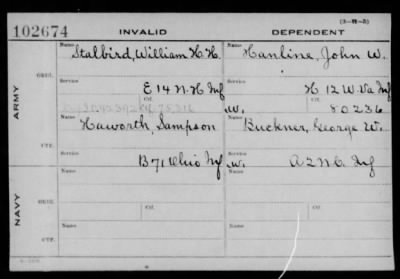 (3-11-5)
102674 INVALID DEPENDENT
Name Name
Stalbird, William H. H. Hanline, John W.
ORIG.
Service Service
E 14 N. H Inf H 12 W. Va Inf
Ctf. Ctf.
W. 80236
ARMY
Name Name
Haworth, Sampson Buckner, George W.
CTF.
Service Service
B 71 Ohio Inf W. A 2 N C. Inf
Name Name
ORIG.
Ctf. Ctf.
NAVY
Name Name
CTF.